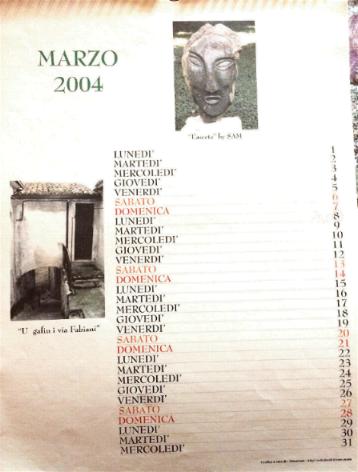 MARZO
2004
by SAM
"U gafiu i via Fabiani"
LUNEDI' 1
MARTEDI' 2
MERCOLEDI' 3
GIOVEDI' 4
VENERDI' 5
SABATO 6
DOMENICA 7
LUNEDI' 8
MARTEDI' 9
MERCOLEDI' 10
GIOVEDI' 11
VENERDI' 12
SABATO 13
DOMENICA 14
LUNEDI' 15
MARTEDI' 16
MERCOLEDI' 17
GIOVEDI' 18
VENERDI' 19
SABATO 20
DOMENICA 21
LUNEDI' 22
MARTEDI' 23
MERCOLEDI' 24
GIOVEDI' 25
VENERDI' 26
SABATO 27
DOMENICA 28
LUNEDI' 29
MARTEDI' 30
MERCOLEDI' 31